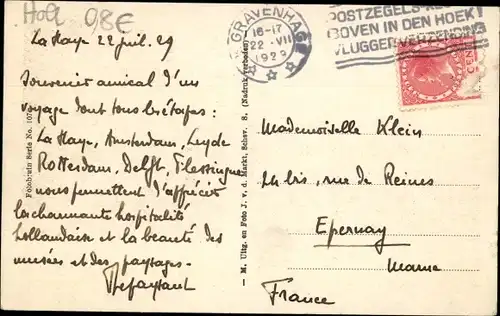 Holl 0,8E
's GRAVENHAGE
16-17
22 · VII
1929
POSTZEGELS
BOVEN IN DEN HOEK
VLUGGER VERZENDING
CENT
La Haye 22 juil. 29
Souvenir amical d'un
voyage dont tous les étapes:
La Haye, Amsterdam, Leyde
Rotterdam, Delft, Flessingue
nous permettent d'apprécier
la charmante hospitalité
hollandaise et la beauté des
musées et des paysages.
Fotobrom Serie No. 107
— M. Uitg. en Foto J. v. d. Markt, Schev. 8. (Nadruk verboden)
Mademoiselle Klein
24 bis, rue de Reines
Epernay
Marne
France